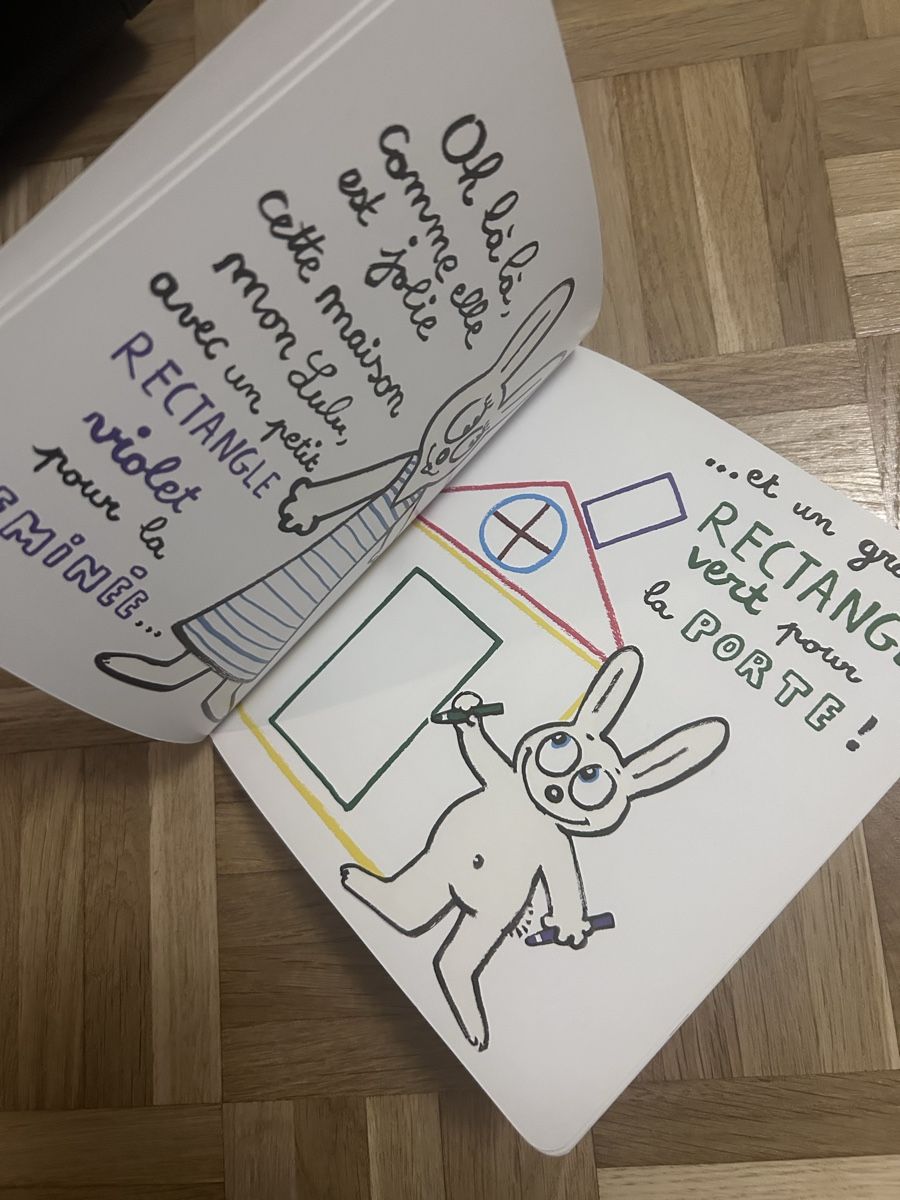 Oh là là,
comme elle
est jolie
cette maison
mon Lulu,
avec un petit
RECTANGLE
violet
pour la
EMINÉE...
...et un gra
RECTANGL
vert pour
la PORTE !